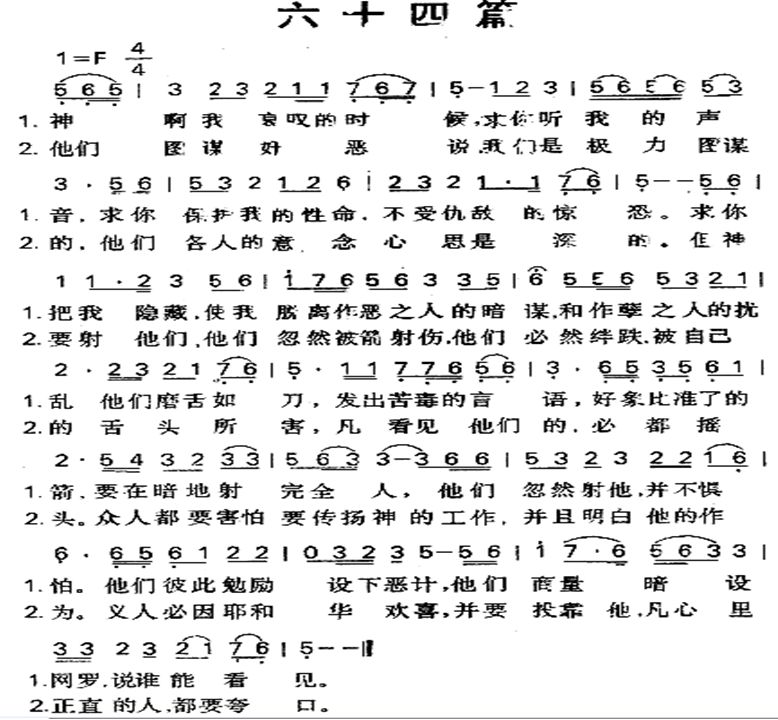 六十四篇
1=F 4/4
5 6 5 | 3 2 3 2 1 1 7 6 7 | 5 - 1 2 3 | 5 6 5 6 5 3
1. 神 啊我 哀叹的时 候,求你听 我 的 声
2. 他们 图 谋 奸 恶 说,我们是 极 力 图谋
3 · 5 6 | 5 3 2 1 2 6 | 2 3 2 1 · 1 7 6 | 5 - - 5 6 |
1. 音,求你 保护我的性命,不受仇敌 的惊 恐。求你
2. 的,他们 各人的意 念心 思是 深 的。但神
1 1 · 2 3 5 6 | 1 7 6 5 6 3 3 5 | 6 5 5 6 5 3 2 1 |
1. 把我 隐藏,使我 脱离作恶之人的暗 谋,和作孽之人的扰
2. 要射 他们,他们 忽然被箭射伤,他们 必然绊跌,被自己
2 · 2 3 2 1 7 6 | 5 · 1 1 7 7 6 5 6 | 3 · 6 5 3 5 6 1 |
1. 乱 他们磨舌如 刀,发出苦毒的言 语,好象比准了的
2. 的 舌 头 所 害,凡 看见 他们 的,必 都 摇
2 · 5 4 3 2 3 3 | 5 6 3 3 - 3 6 6 | 5 3 2 3 2 2 1 6 |
1. 箭,要在暗地射 完全 人, 他们 忽然射他,并不惧
2. 头。众人都要害怕 要传扬神的工作, 并且明白他的作
6 · 6 5 6 1 2 2 | 0 3 2 3 5 - 5 6 | 1 7 · 6 5 6 3 3 |
1. 怕。他们彼此勉励 设下恶计,他们 商量 暗 设
2. 为。义人必因耶和 华 欢喜,并要 投靠 他,凡心里
3 3 2 3 2 1 7 6 | 5 - - ||
1. 网罗,说谁能 看 见。
2. 正直的人,都要夸 口。